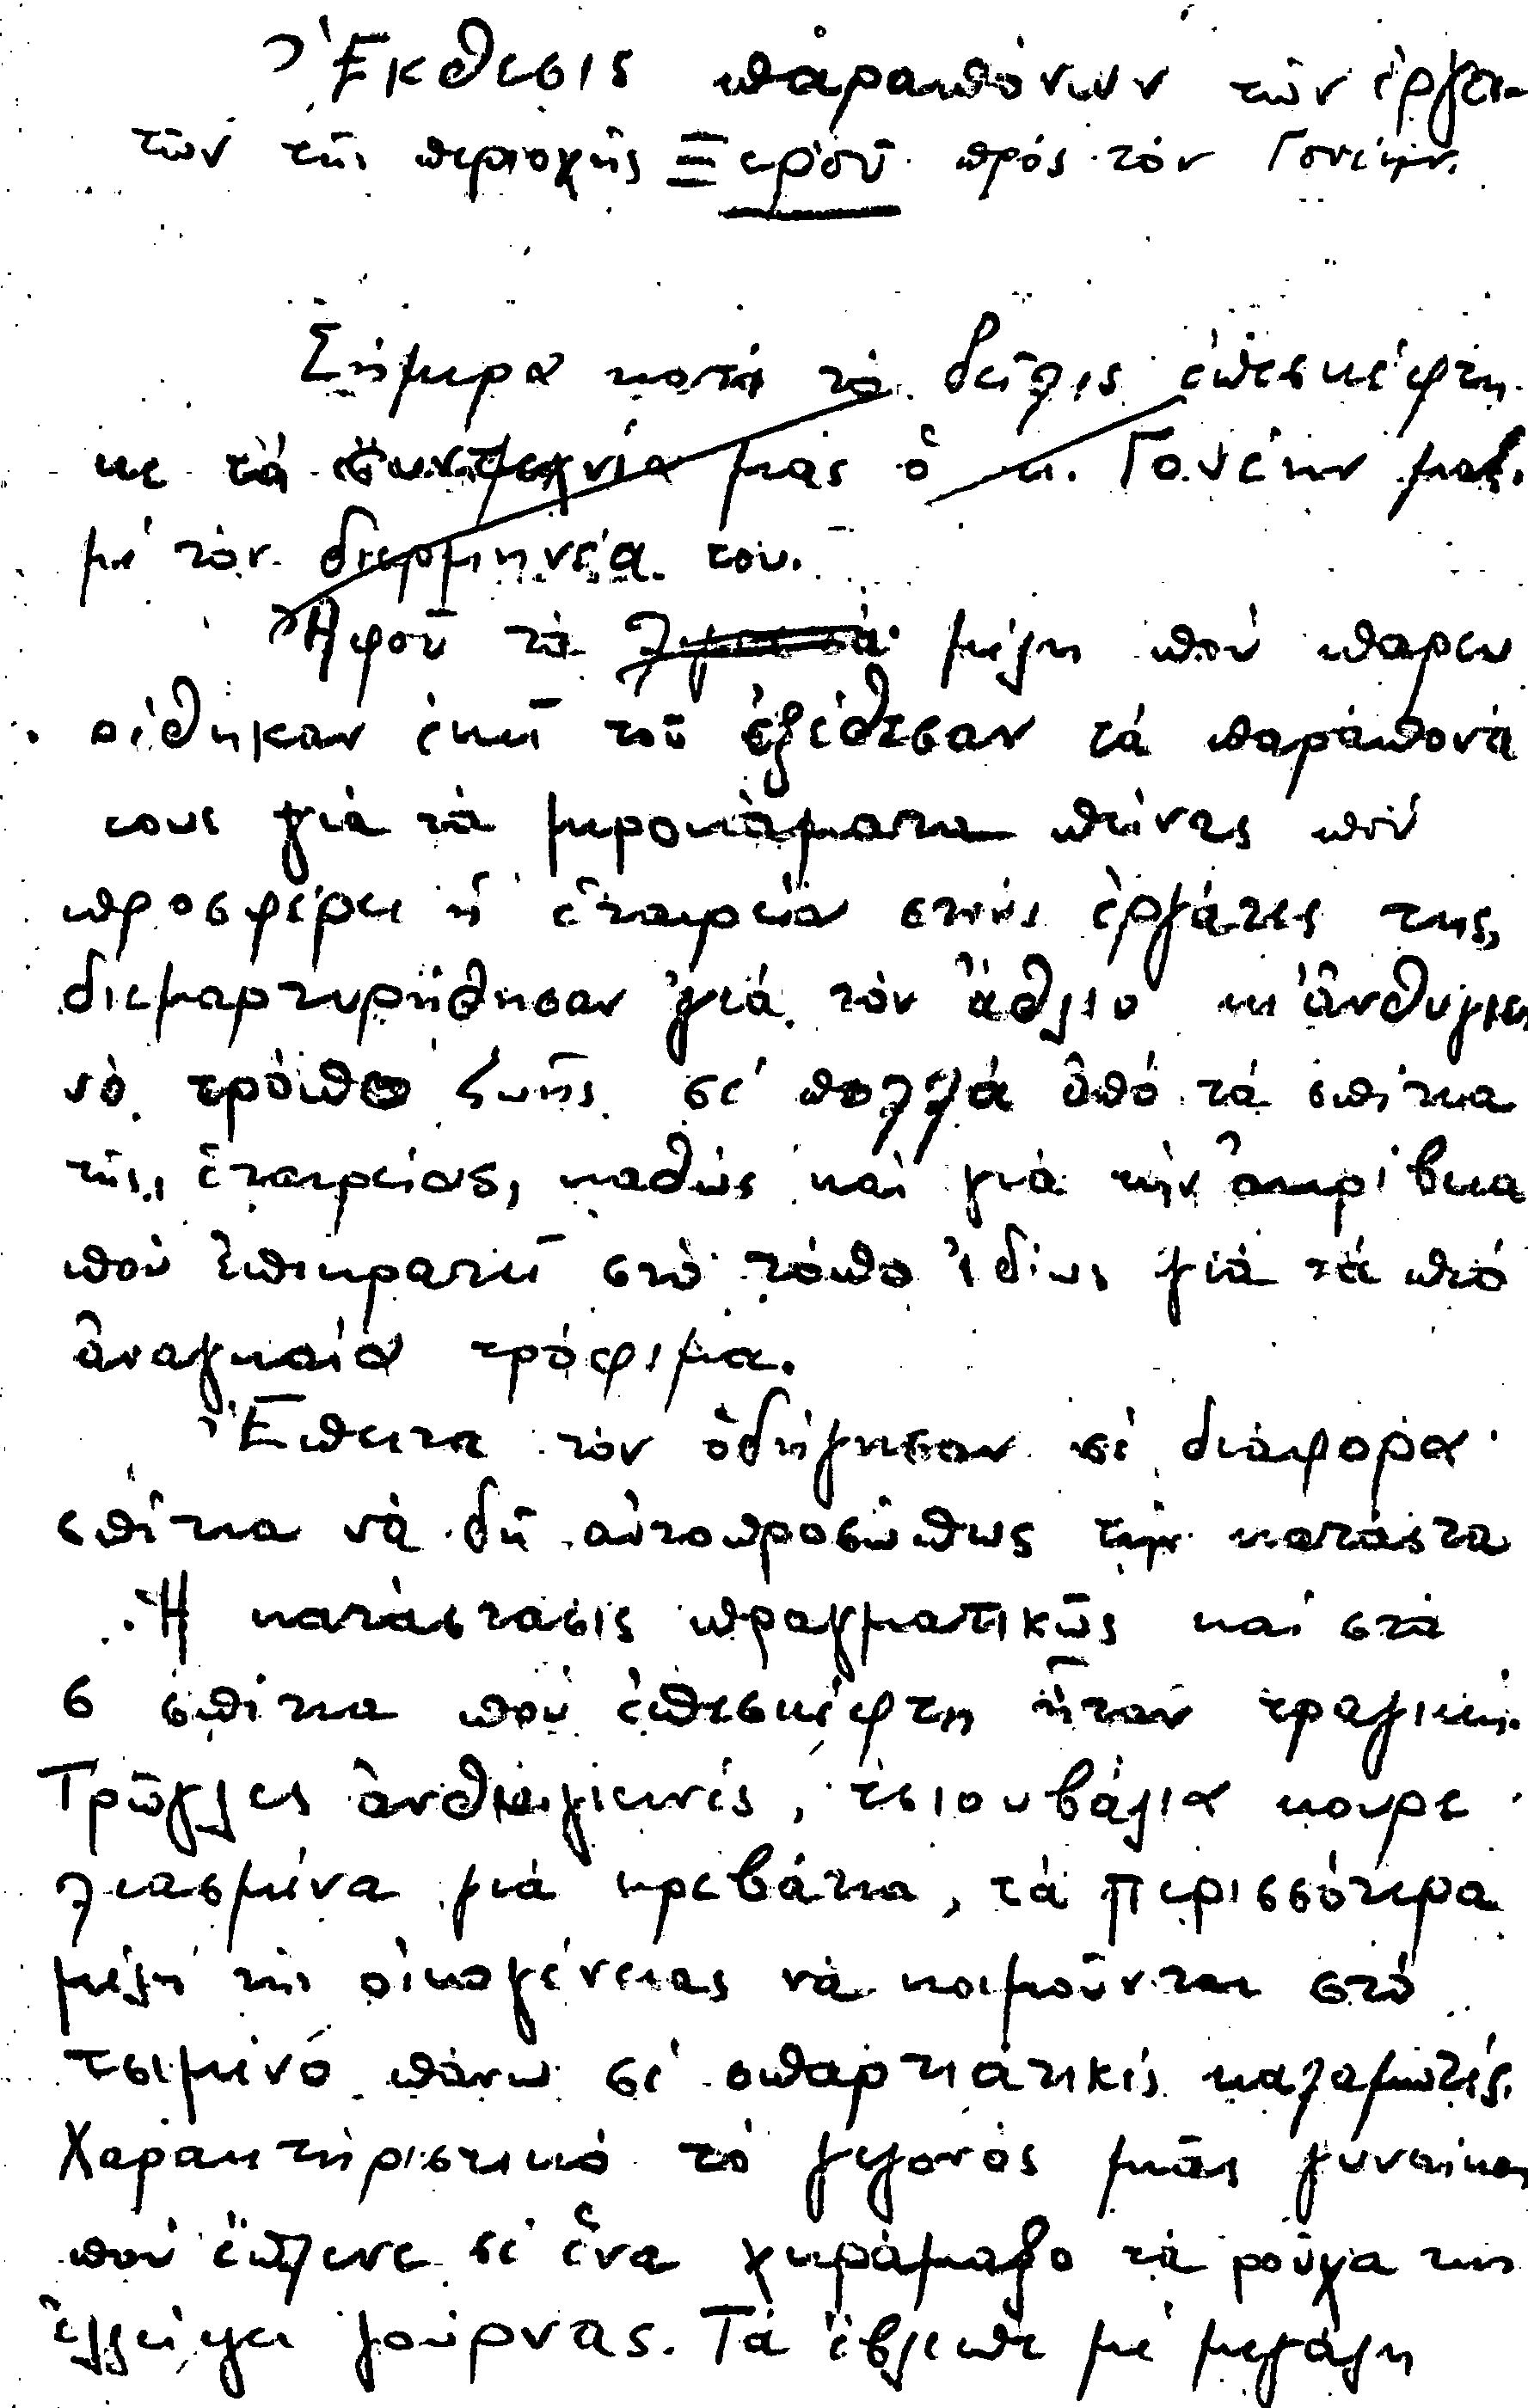 Ἔκθεσις παραπόνων τῶν ἐργα-
τῶν τῆς περιοχῆς Ξεροῦ πρός τόν Γονέην.
Σήμερα κατά τό δείλις ἐπεσκέφτη-
κε τή συντεχνία μας ὁ κ. Γονέην μαζί
μέ τόν διερμηνέα του.
Ἀφοῦ τά μέλη πού παρευ
ρέθηκαν ἐκεῖ τοῦ ἐξέθεσαν τά παράπονά
τους γιά τά μεροκάματα πείνας πού
προσφέρει ἡ ἑταιρεία στούς ἐργάτες της,
διεμαρτυρήθησαν γιά τόν ἄθλιο κι ἀνθυγιει
νό τρόπο ζωῆς σέ πολλά ἀπό τά σπίτια
τῆς ἑταιρείας, καθώς καί γιά τήν ἀκρίβεια
πού ἐπικρατεῖ στό τόπο ἰδίως γιά τά πιό
ἀναγκαῖα τρόφιμα.
Ἔπειτα τόν ὁδήγησαν σέ διάφορα
σπίτια νά δῆ αὐτοπροσώπως τήν κατάστα
Ἡ κατάστασις πραγματικῶς καί στά
6 σπίτια πού ἐπεσκέφτη ἦταν τραγική.
Τρῶγλες ἀνθυγιεινές, τσιουβάλια κουρε
λιασμένα γιά κρεβάτια, τά περισσότερα
μέλη τῆς οἰκογένειας νά κοιμοῦνται στό
τσιμένο πάνω σέ σπαρτιάτικές καλαμωτές.
Χαρακτηριστικό τό γεγονός μιᾶς γυναίκας
πού ἔπλενε σέ ἕνα χεράμαξο τά ροῦχα της
ἐλλείψει γούρνας. Τά ἔβλεπε μέ μεγάλη